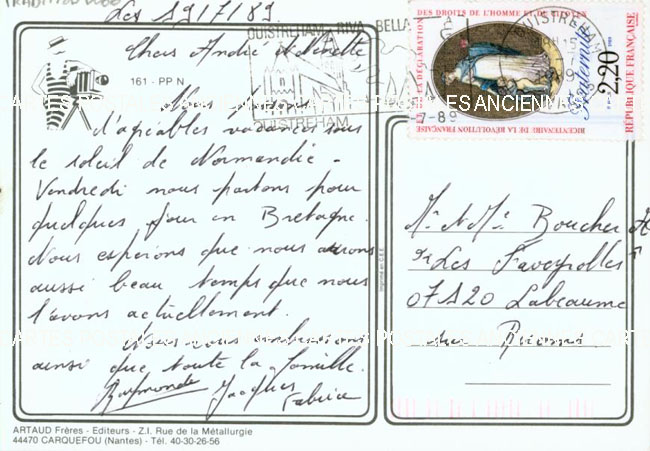 Les 19/7/89
OUISTREHAM - RIVA - BELLA
OUISTREHAM
DES DROITS DE L'HOMME ET DU CITOYEN
LA DÉCLARATION
BICENTENAIRE DE LA RÉVOLUTION FRANÇAISE
Fraternité
2,20
RÉPUBLIQUE FRANÇAISE
OUISTREHAM
7-89
161 - PP N
Chers André
Nous
d'agréables vacances sous
le soleil de Normandie -
Vendredi nous partons pour
quelques jour en Bretagne.
Nous esperions que nous aurons
aussi beau temps que nous
l'avons actuellement.
Nous vous embrassons
ainsi que toute la famille.
Raymonde Jacques
Fabrice
Mr et Me Boucher A
"Les Faveyrolles"
07120 Labeaume
par Ruoms
Imprimé en C.E.E.
ARTES POSTALES ANCIENNES
CARTES POSTALES ANCIENNES
ARTAUD Frères - Editeurs - Z.I. Rue de la Métallurgie
44470 CARQUEFOU (Nantes) - Tél. 40-30-26-56